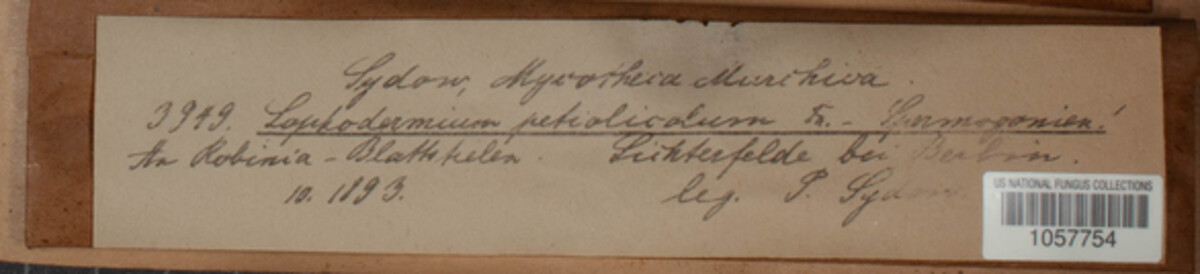 Sydow, Mycotheca Marchica.
3949. Lophodermium petiolicolum Fu. - Spermogonien!
An Robinia - Blattstielen. Lichterfelde bei Berlin.
10. 1893. leg. P. Sydow.
US NATIONAL FUNGUS COLLECTIONS
1057754